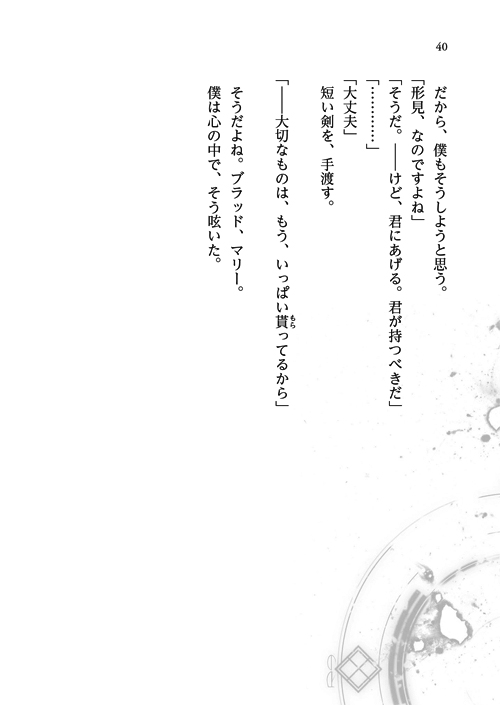 40
だから、僕もそうしようと思う。
「形見、なのですよね」
「そうだ。――けど、君にあげる。君が持つべきだ」
「…………」
「大丈夫」
短い剣を、手渡す。
「――大切なものは、もう、いっぱい貰ってるから」
そうだよね。ブラッド、マリー。
僕は心の中で、そう呟いた。